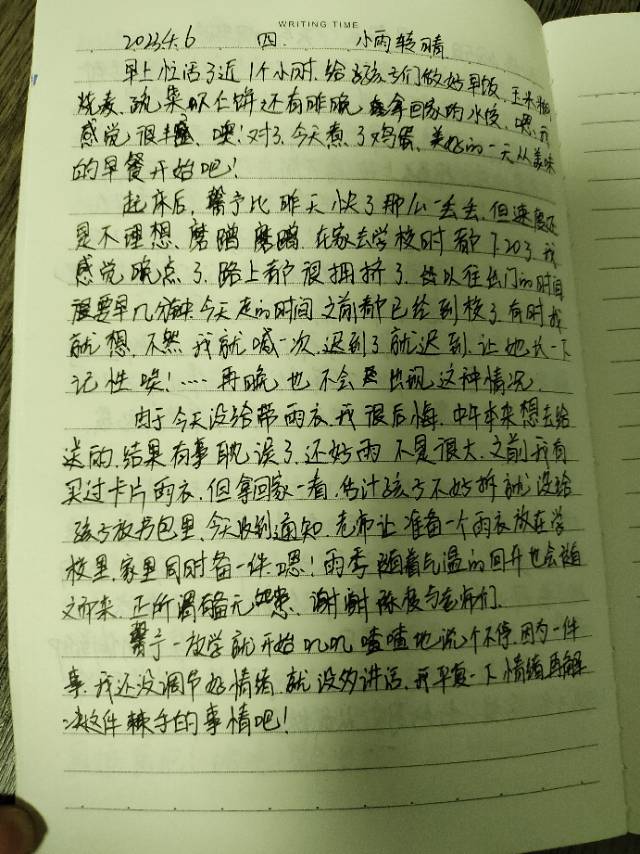 WRITING TIME
2023.4.6 四. 小雨转晴
早上忙活了近1个小时.给孩子们做好早饭、玉米糊
烧麦、疏果虾仁饼还有昨晚拿回家的水饺、嗯!我
感觉很丰盛、噢!对了.今天煮了鸡蛋、美好的一天从美味
的早餐开始吧!
起床后,馨予比昨天快了那么一丢丢.但速度还
是不理想、磨蹭磨蹭.在家去学校时都7.20了.我
感觉晚点了.路上都很拥挤了.比以往出门的时间
要早几分钟.今天走的时间之前都已经到校了.有时我
就想.不然我就喊一次.迟到了就迟到.让她长一下
记性唉!....再晚也不会出现这种情况.
由于今天没给带雨衣.我很后悔.中午本来想去给
送的.结果有事耽误了.还好雨不是很大.之前我有
买过卡片雨衣.但拿回家一看.估计孩子不好拆就没给
孩子放书包里.今天收到通知.老师让准备一个雨衣放在学
校里.家里同时备一件.嗯!雨季随着气温的回升也会随
之而来.正所谓有备无患.谢谢陈校与老师们.
馨予一放学就开始叽叽喳喳地说个不停.因为一件
事.我还没调节好情绪.就没多讲话.我平复一下情绪再解
决这件棘手的事情吧!